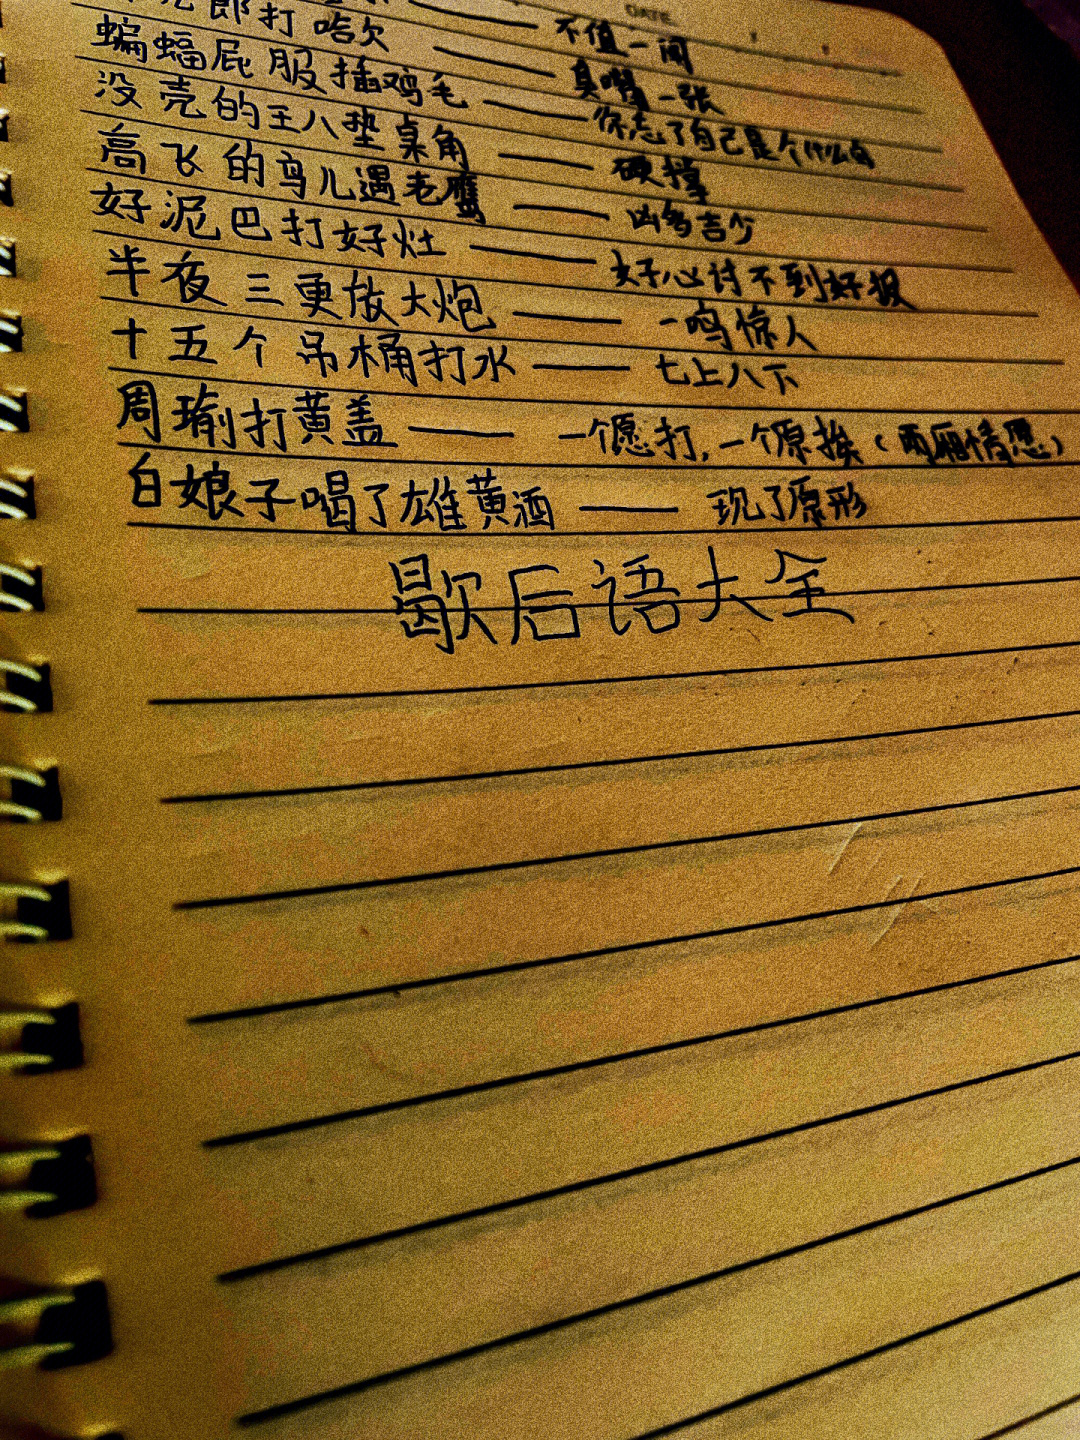 DATE.
—— 不值一闻
壳郎打哈欠 —— 臭嘴一张
蝙蝠屁服插鸡毛 —— 你忘了自己是个什么鸟
没壳的王八垫桌角 —— 硬撑
高飞的鸟儿遇老鹰 —— 凶多吉少
好泥巴打好灶 —— 好心讨不到好报
半夜三更放大炮 —— 一鸣惊人
十五个吊桶打水 —— 七上八下
周瑜打黄盖 —— 一个愿打,一个原挨(两厢情愿)
白娘子喝了雄黄酒 —— 现了原形
歇后语大全